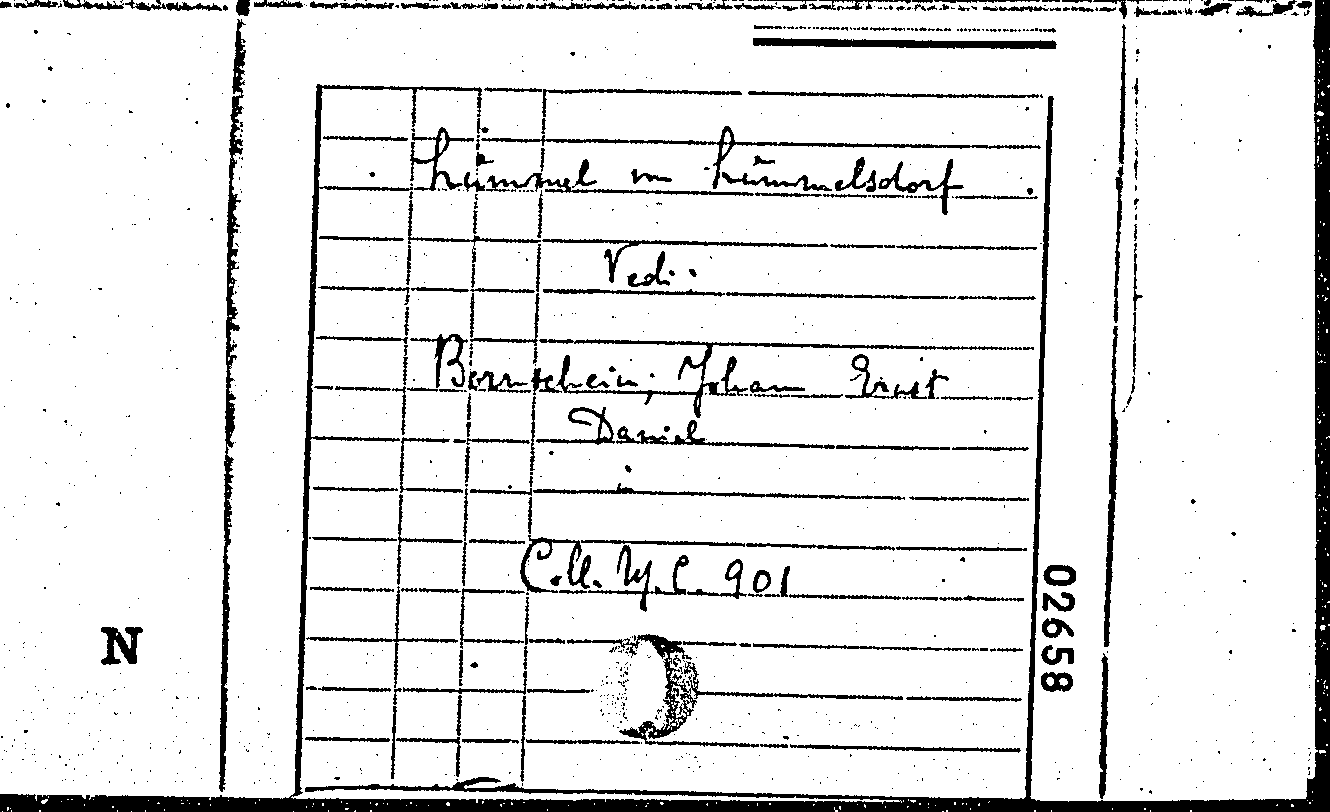 Lümmel von Lümmelsdorf
Vedi:
Bornschein, Johann Ernst
Daniel
in
Coll. M. C. 901
02658
N